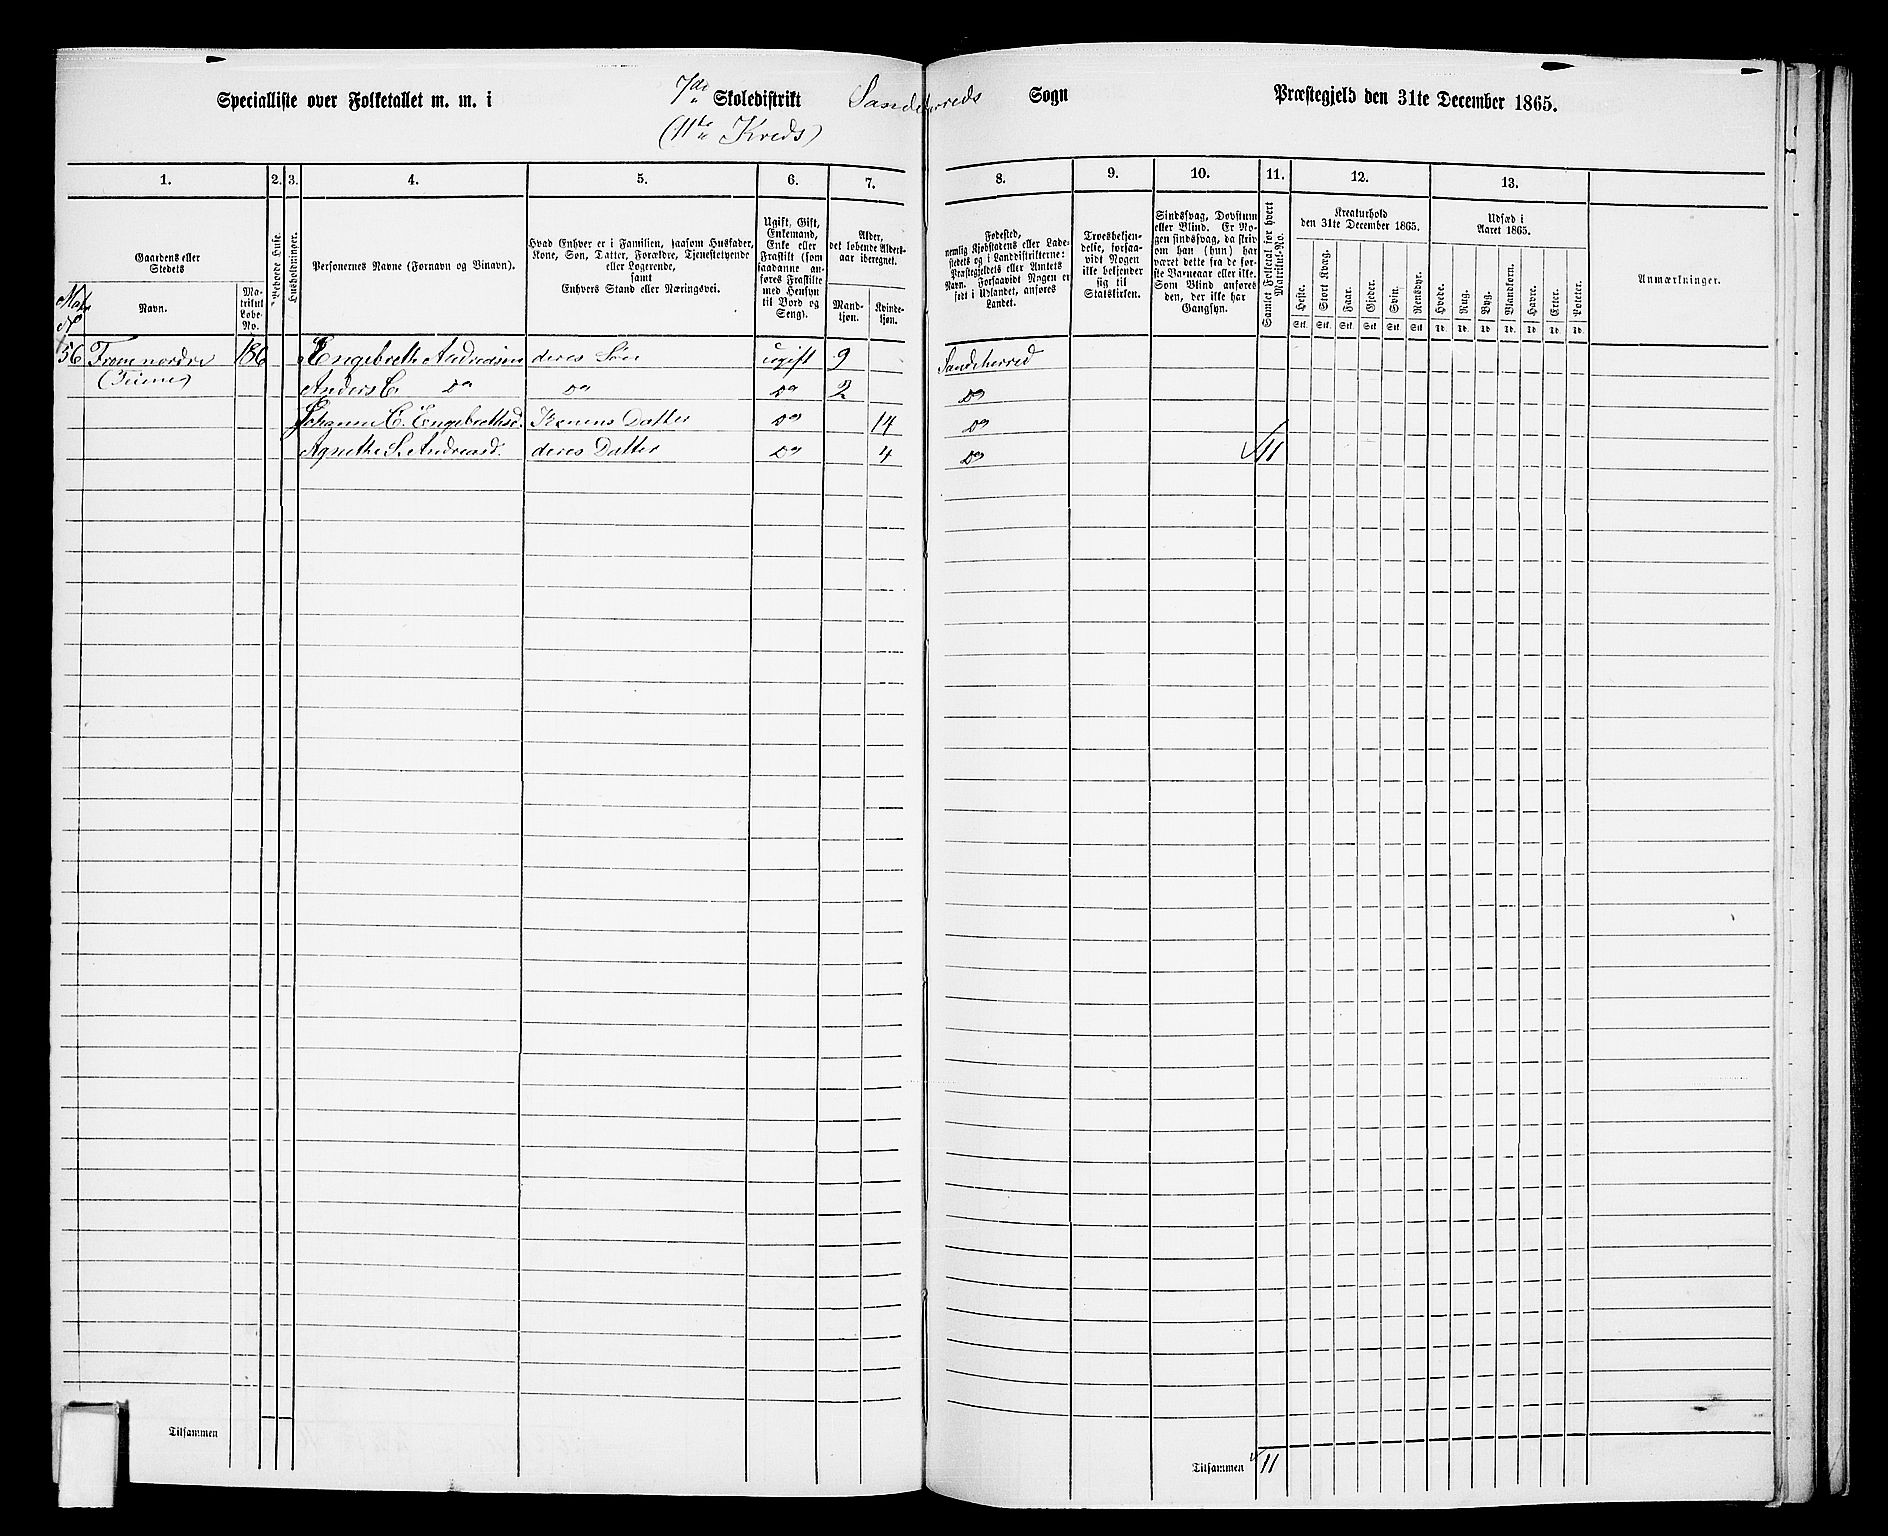 Specialliste over Folketallet m. m. i 7de Skoledistrikt Sandeherreds Sogn Præstegjeld den 31te December 1865.
(11te Kreds)
1. 2. 3. 4. 5. 6. 7. 8. 9. 10. 11. 12. 13.
Gaardens eller Stedets
Navn.
Matrikul Løbe-No.
Beboede Huse.
Husholdninger.
Personernes Navne (Fornavn og Tilnavn).
Hvad Enhver er i Familien, saasom Husfader, Kone, Søn, Datter, Forældre, Tjenestetyende eller Logerende,
samt
Enhvers Stand eller Næringsvei.
Ugift, Gift, Enkemand, Enke eller Fraskilt (som saadanne anføres Fraskilte med Hensyn til Bord og Seng).
Alder, det løbende Aldersaar iberegnet.
Mandkjøn.
Kvindekjøn.
Fødested, nemlig Kjøbstadens eller Ladestedets og i Landdistrikterne: Præstegjeldets eller Amtets Navn. Forsaavidt Nogen er født i Udlandet, anføres Landet.
Troesbekjendelse, forsaavidt Nogen ikke bekjender sig til Statskirken.
Sindssvag, Døvstum eller Blind. Er Nogen sindssvag, da skrives om han (hun) har været dette fra de første Barneaar eller ikke. Som Blind anføres den, der ikke har Gangsyn.
Samlet Folketal for hvert Matrikul-No.
Kreaturhold den 31te December 1865.
Heste. Stort Kvæg. Faar. Gjeder. Svin. Rensdyr.
Stk. Stk. Stk. Stk. Stk. Stk.
Udsæd i Aaret 1865.
Hvede. Rug. Byg. Blandkorn. Havre. Erter. Poteter.
Td. Td. Td. Td. Td. Td. Td.
Anmærkninger.
56 nordre 186 Engebreth Andreasen deres Søn ugift 9 Sandeherred
Anders C. Do Do Do 2 Do
Johanne C. Engebrethsd. Konens Datter Do 14 Do
Agnethe S. Andreasd. deres Datter Do 4 Do 11
Tilsammen
Tilsammen 11